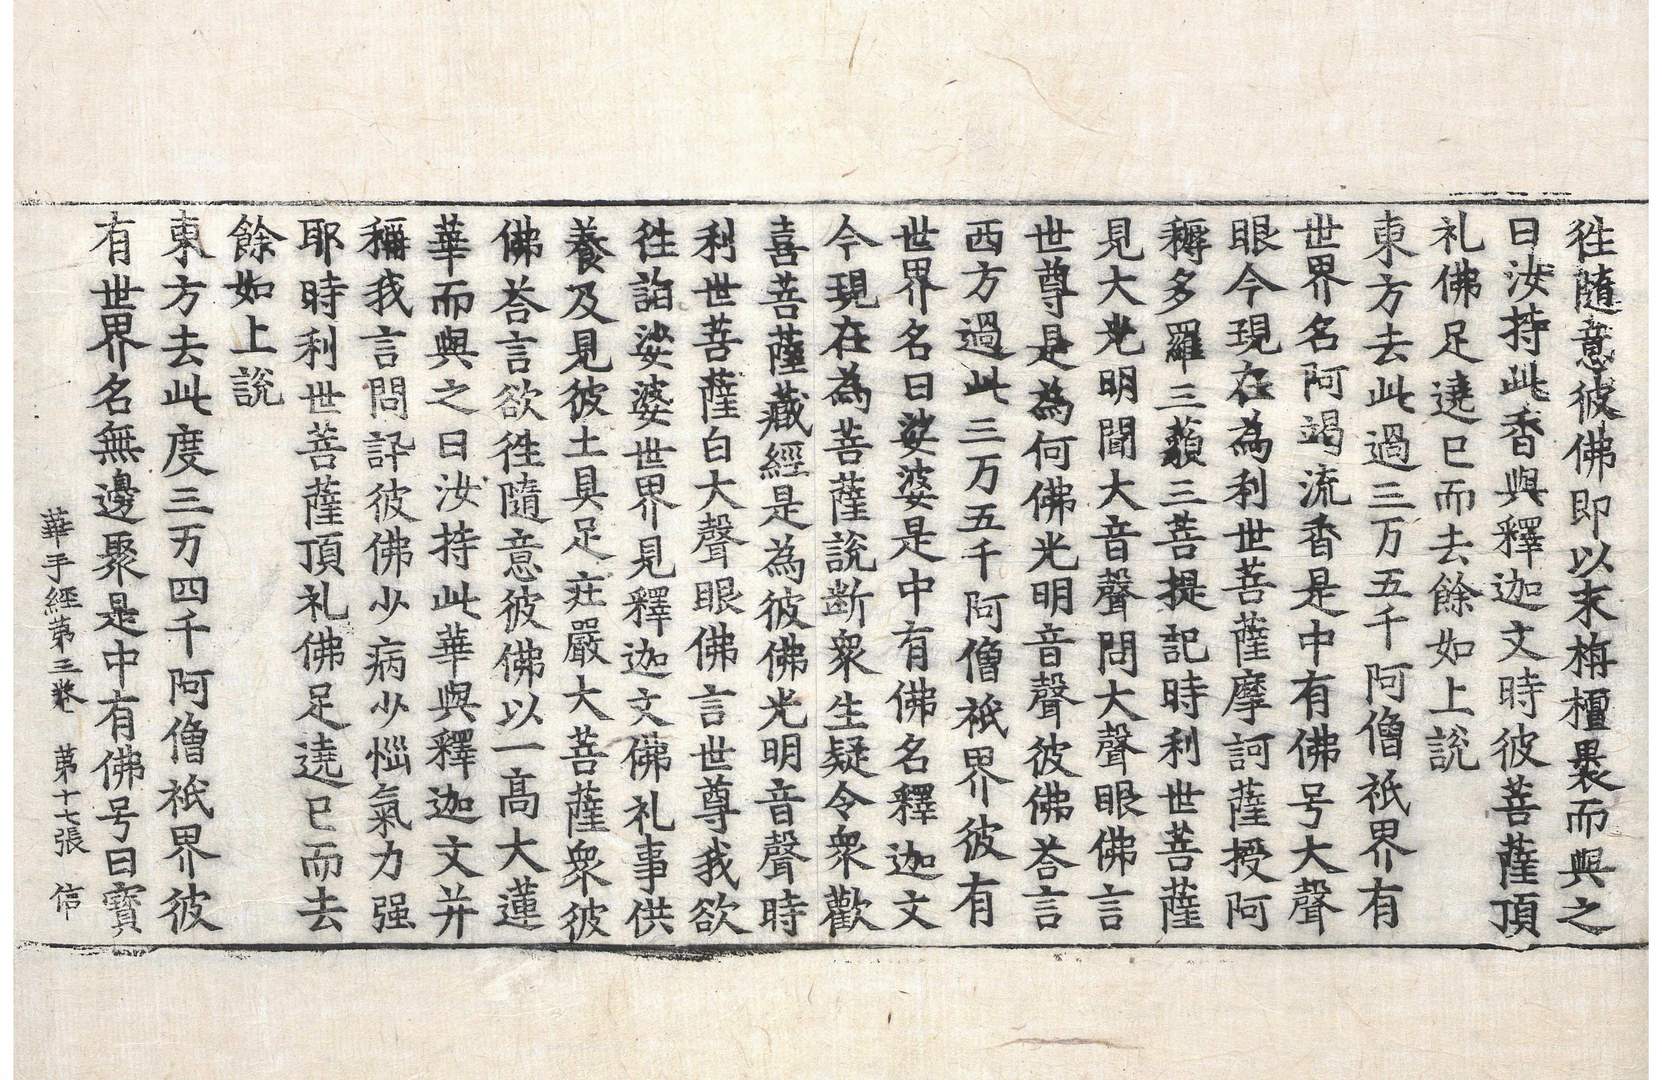 徃隨意彼佛即以末栴檀褁而與之
曰汝持此香與釋迦文時彼菩薩頂
礼佛足遶已而去餘如上說
東方去此過三万五千阿僧祇界有
世界名阿竭流香是中有佛号大聲
眼今現在為利世菩薩摩訶薩授阿
耨多羅三藐三菩提記時利世菩薩
見大光明聞大音聲問大聲眼佛言
世尊是為何佛光明音聲彼佛荅言
西方過此三万五千阿僧祇界彼有
世界名曰娑婆是中有佛名釋迦文
今現在為菩薩說斷衆生疑令衆歡
喜菩薩藏經是為彼佛光明音聲時
利世菩薩白大聲眼佛言世尊我欲
徃詣娑婆世界見釋迦文佛礼事供
養及見彼土具足庄嚴大菩薩衆彼
佛荅言欲徃隨意彼佛以一高大蓮
華而與之曰汝持此華與釋迦文并
稱我言問訊彼佛少病少惱氣力强
耶時利世菩薩頂礼佛足遶已而去
餘如上說
東方去此度三万四千阿僧祇界彼
有世界名無邊聚是中有佛号曰寳
華手經第三卷 第十七張 信